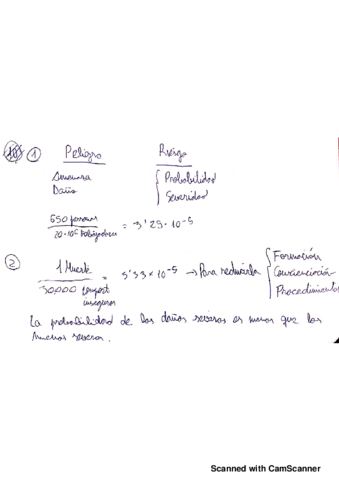 ① Peligro Riesgo
Amenaza { Probabilidad
Daño { Severidad
650 personas / 20·10⁶ trabajadores = 3'25·10⁻⁵
② 1 Muerte / 30000 comport inseguros = 3'33×10⁻⁵ → Para reducirla { Formación
Concienciación
Procedimientos
La probabilidad de los daños severos es menor que los
menos severos.
Scanned with CamScanner